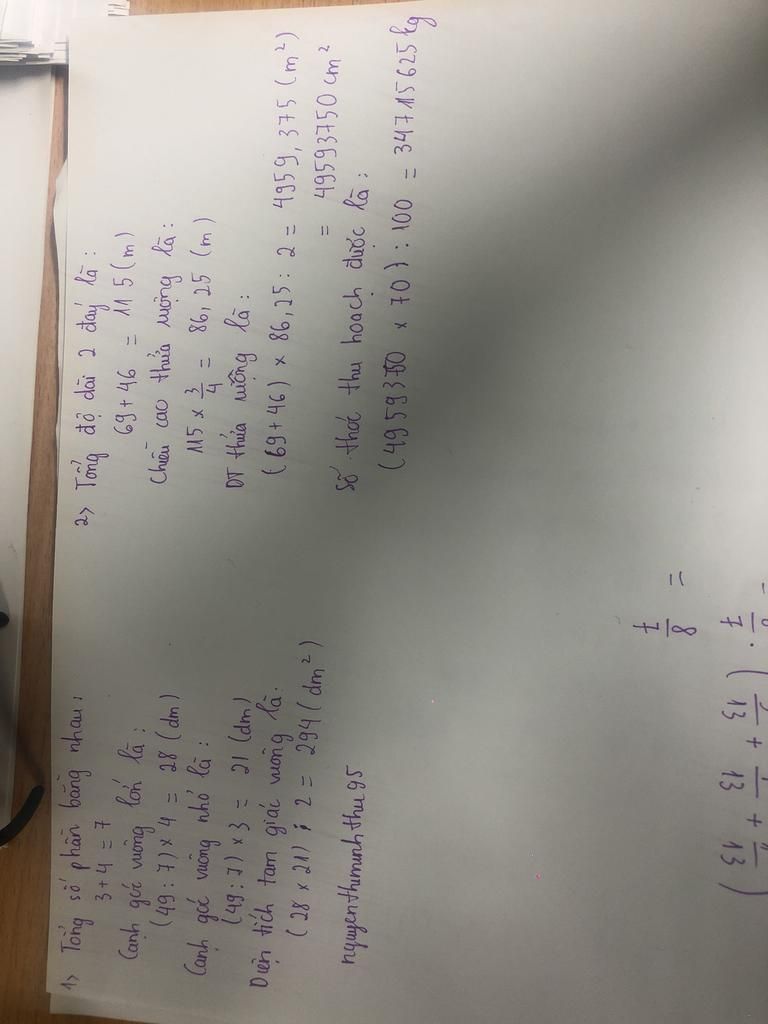 1> Tổng số phần bằng nhau:
3+4 = 7
Cạnh góc vuông lớn là:
(49:7) × 4 = 28 (dm)
Cạnh góc vuông nhỏ là:
(49:7) × 3 = 21 (dm)
Diện tích tam giác vuông là:
(28 × 21) : 2 = 294 (dm²)
nguyenthiminhthu95
2> Tổng độ dài 2 đáy là:
69+46 = 115 (m)
Chiều cao thửa ruộng là:
115 × 3/4 = 86,25 (m)
DT thửa ruộng là:
(69+46) × 86,25 : 2 = 4959,375 (m²)
= 49593750 cm²
Số thóc thu hoạch được là:
(49593750 × 70) : 100 = 34715625 kg